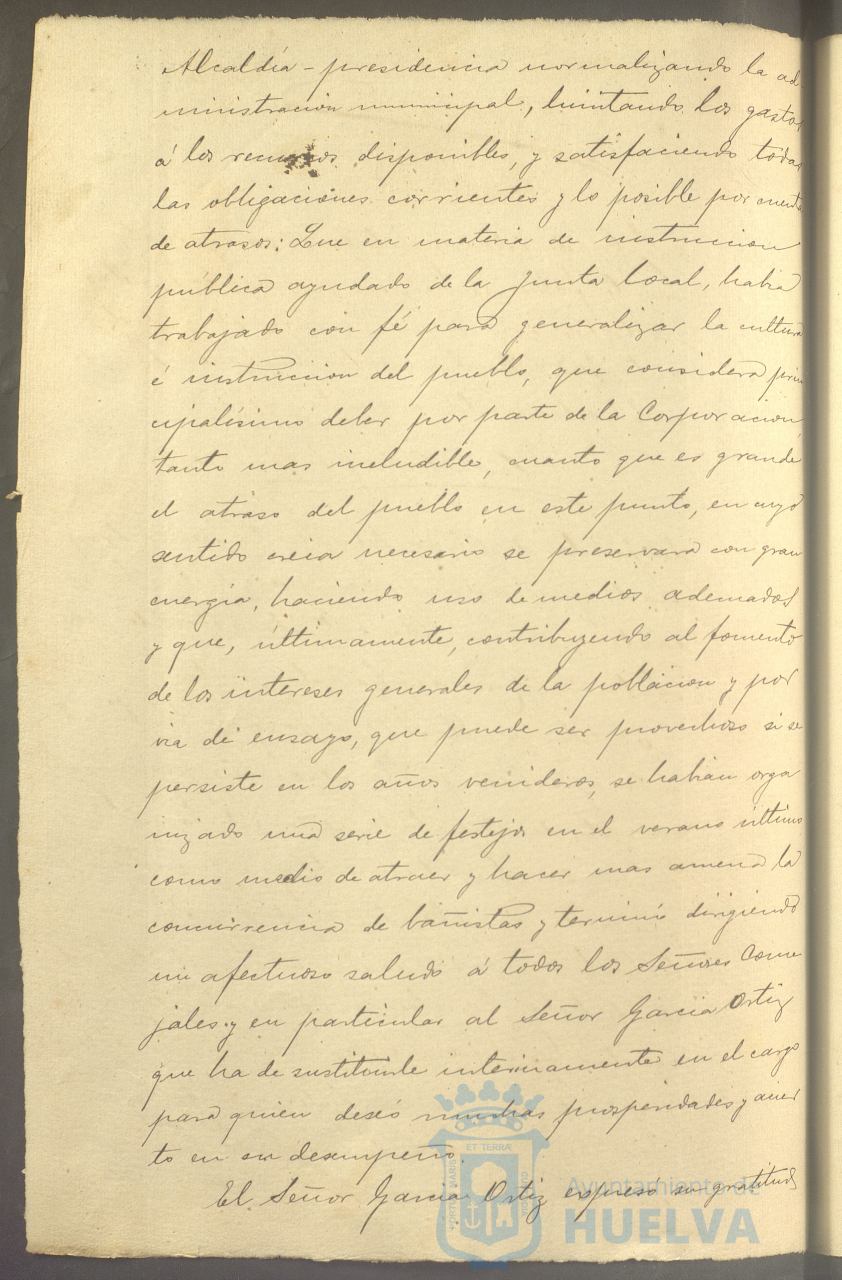 Alcaldía-presidencia normalizando la ad-
ministracion municipal, limitando los gastos
á los recursos disponibles, y satisfaciendo todas
las obligaciones corrientes y lo posible por cuenta
de atrasos: Que en materia de instruccion
pública ayudado de la Junta local, habia
trabajado con fé para generalizar la cultura
é instruccion del pueblo, que considera prin
cipalísimo deber por parte de la Corporacion,
tanto mas ineludible, cuanto que es grande
el atraso del pueblo en este punto, en cuyo
sentido creia necesario se perservara con gran
energía, haciendo uso de medios adecuados
y que, últimamente, contribuyendo al fomento
de los intereses generales de la poblacion y por
via de ensayo, que puede ser provechoso si se
persiste en los años venideros, se habian orga
nizado una serie de festejos en el verano último
como medio de atraer y hacer mas amena la
concurrencia de bañistas y terminó dirigiendo
un afectuoso saludo á todos los Señores Conce
jales y en particular al Señor Garcia Ortiz
que ha de sustituirle interinamente en el cargo
para quien deseó muchas prosperidades y acier
to en su desempeño.
El Señor Garcia Ortiz espresó su gratitud
ET TERRÆ
PORTUS MARIS
CUSTODIA
Ayuntamiento de
HUELVA